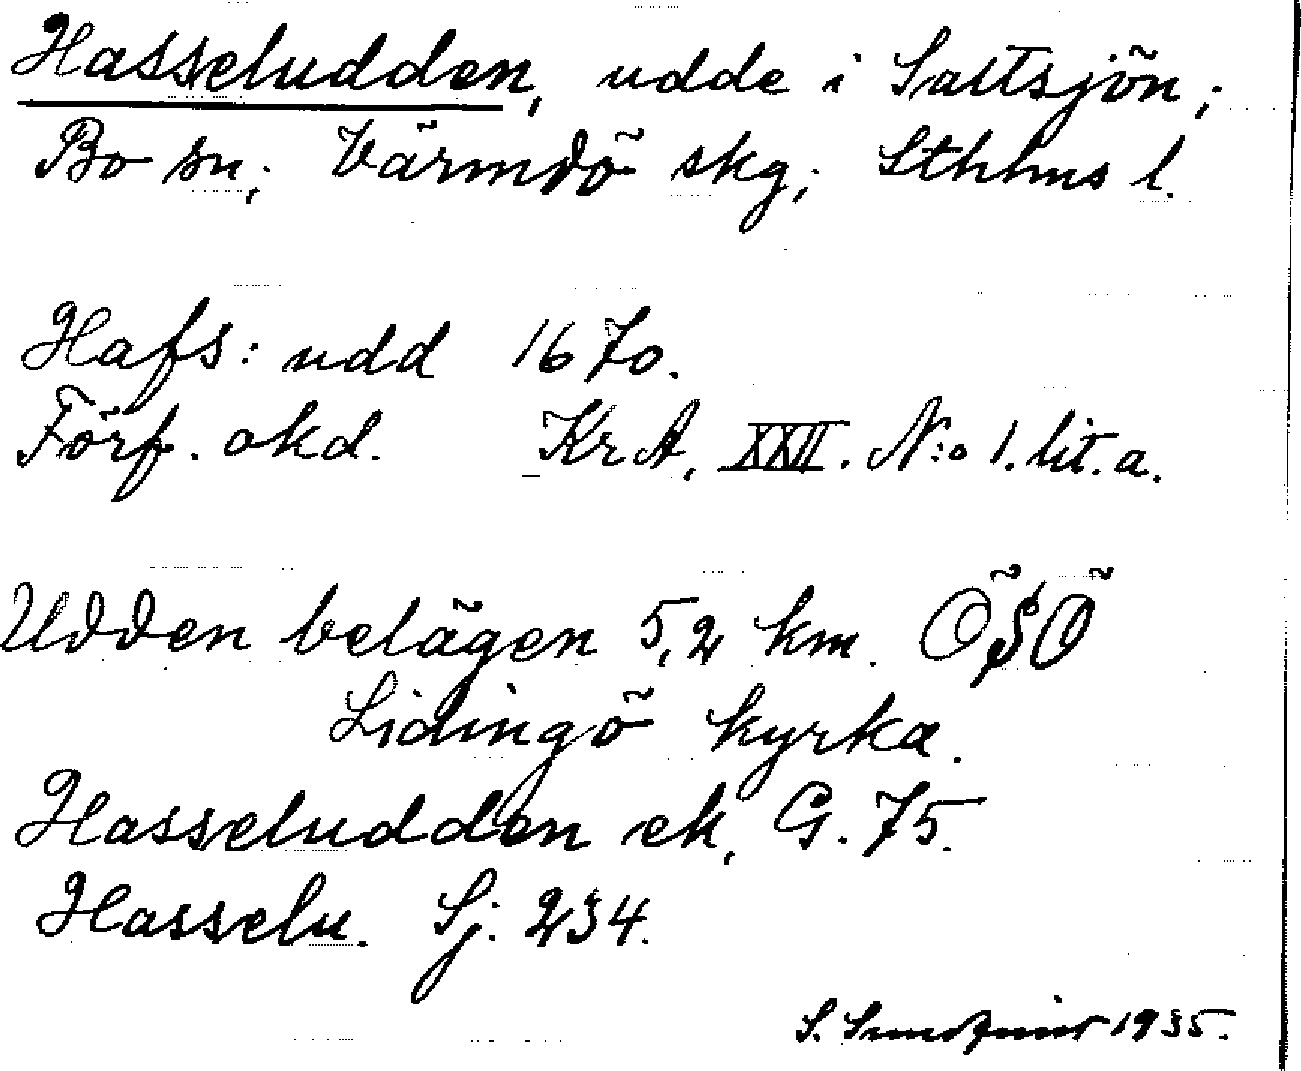 Hasseludden, udde i Saltsjön;
Bo sn; Värmdö skg; Sthlms l.
Hafs: udd 1670.
Förf. okd. KrA, XXII. N:o 1. lit. a.
Udden belägen 5,2 km. ÖSÖ
Lidingö kyrka.
Hasseludden ek, G. 75.
Hasselu. Sj: 234.
S. Sundqvist 1935.